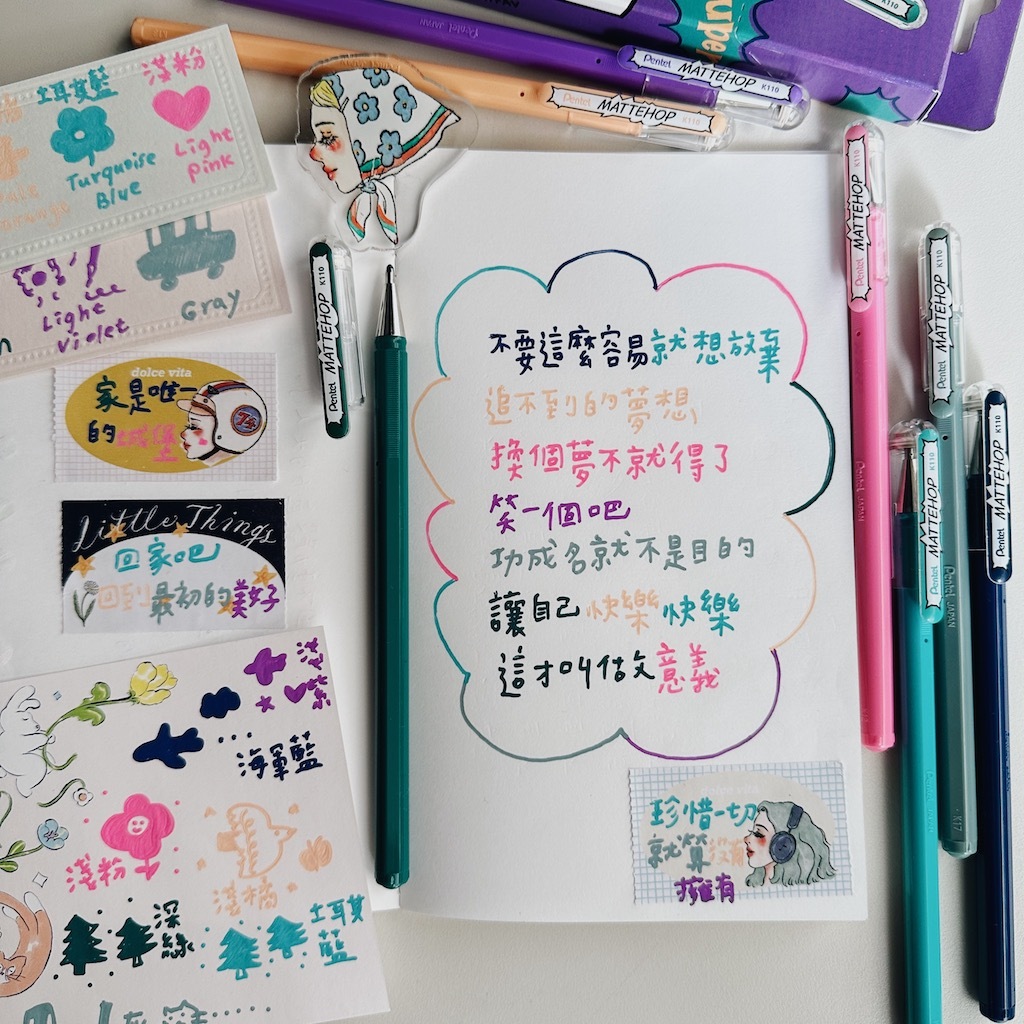 Pentel JAPAN
Pentel MATTEHOP K110
Pentel MATTEHOP K110
土耳其藍
淺粉
Turquoise
Blue
Light
pink
Light
violet
Gray
MATTEHOP K110
Pentel MATTEHOP K110
Pentel MATTEHOP K110
Pentel MATTEHOP K110
Pentel MATTEHOP K110
dolce vita
家是唯一
的城堡
Little Things
回家吧
回到最初的美好
不要這麼容易就想放棄
追不到的夢想
換個夢不就得了
笑一個吧
功成名就不是目的
讓自己快樂快樂
這才叫做意義
淺紫
海軍藍
淺粉
淺橘
深綠
土耳其藍
dolce vita
珍惜一切
就算沒有
擁有
Pentel JAPAN
Pentel JAPAN
K17